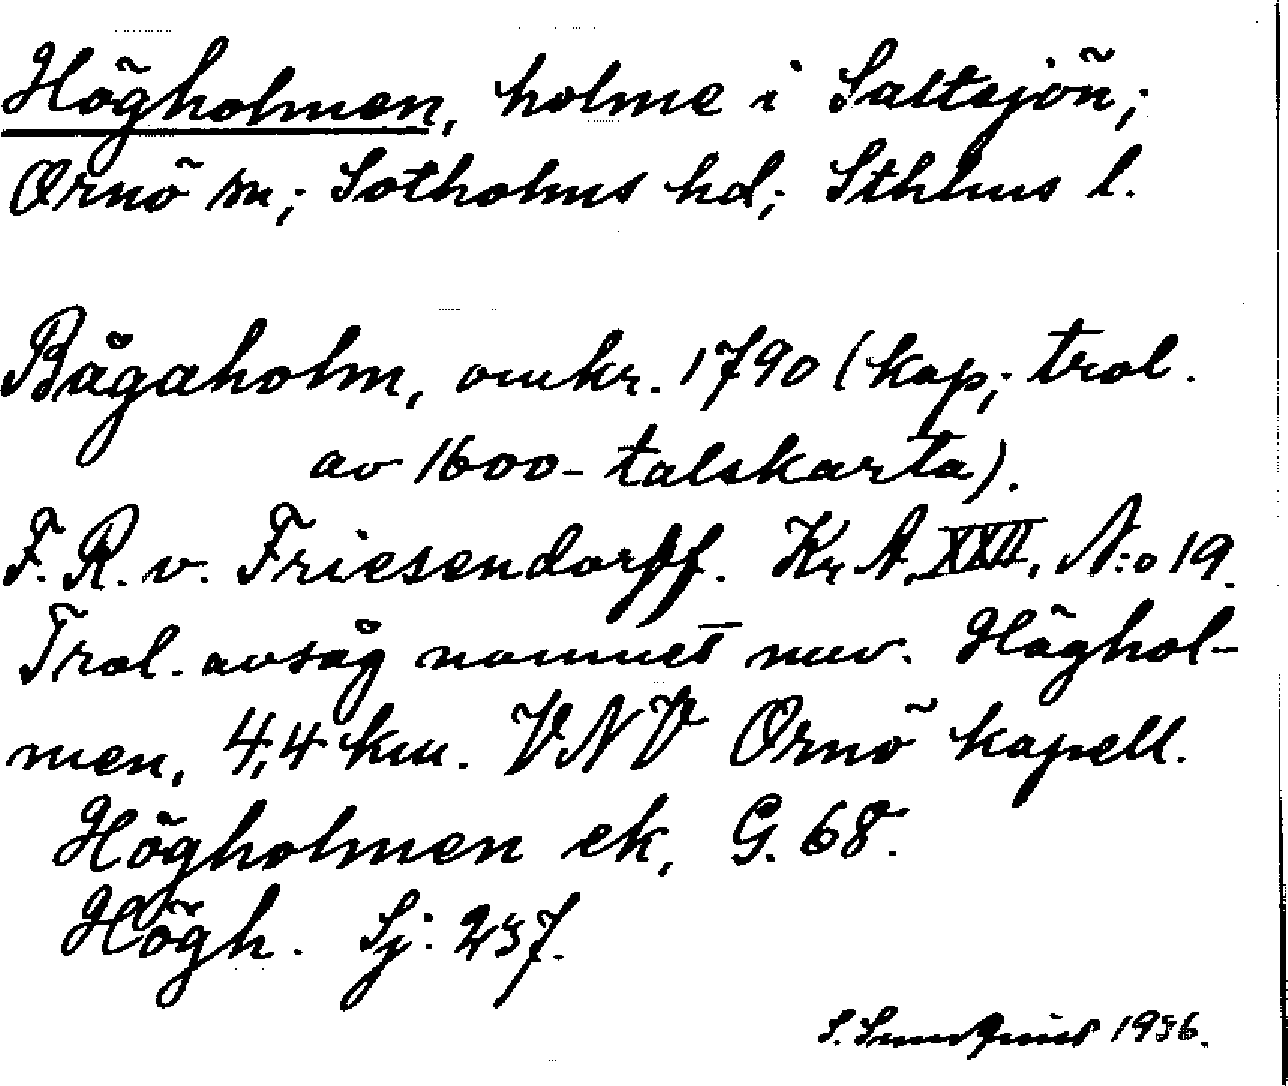 Högholmen, holme i Saltsjön;
Ornö sn; Sotholms hd; Sthlms l.
Bågaholm, omkr. 1790 (kop; trol.
av 1600-talskarta).
F. R. v. Friesendorff. Kr A. XXII, N:o 19.
Trol. avsåg namnet nuv. Höghol-
men, 4,4 km. VNV Ornö kapell.
Högholmen ek, G. 68.
Högh. Sj: 237.
S. 1936.